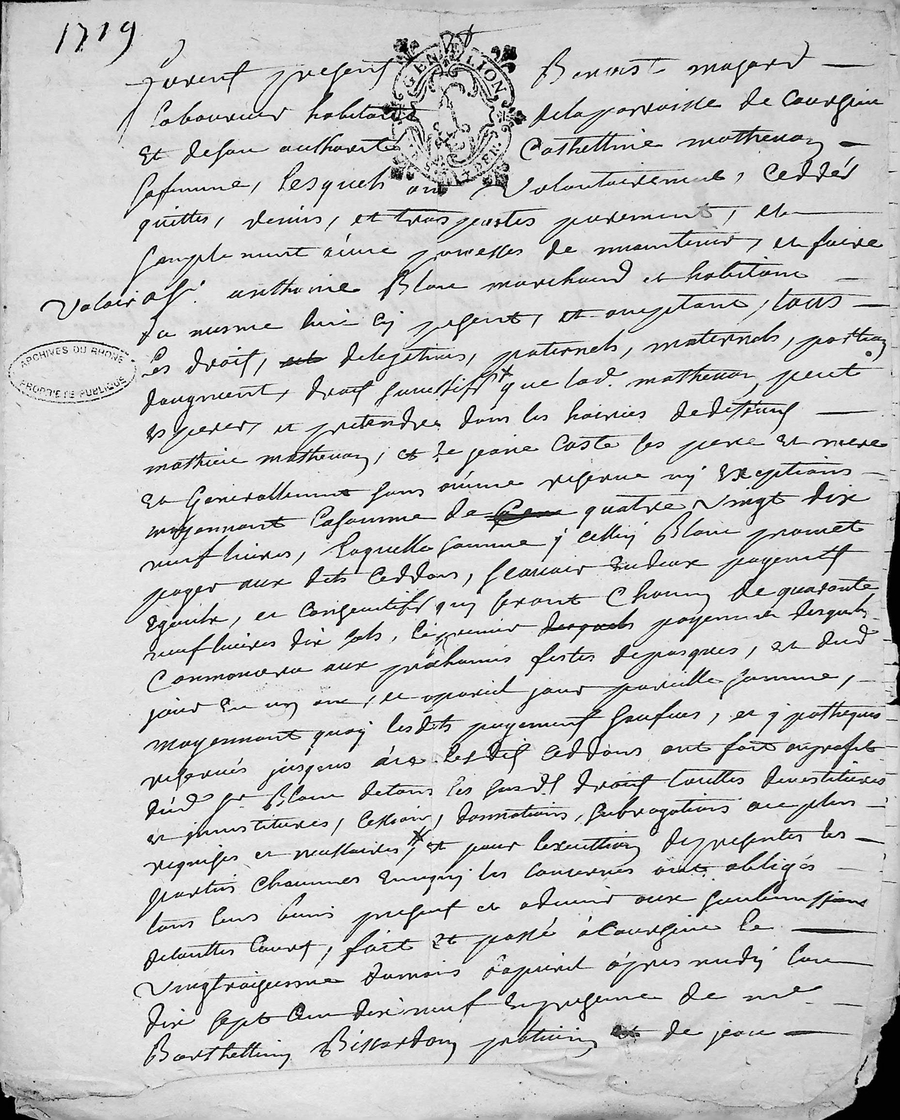 1719
GEN LION
furent presents Benoist magard
Laboureur habitant de la parroisse de Courzieu
Et de son authorité Cathelline mathevon
sa femme, lesquels ont volontairement, ceddés
quittes, remis, et transportes purement, et
simplement avec promesses de maintenir, et faire
valoir a Sr. anthoine Blanc marchand et habitant
du mesme lieu cy present, et acceptant, tous
les droits, et legitimes, paternels, maternels, portion
daugment, droit successifs que lad. mathevon peut
esperer, et pretendre dans les hoiries de deffunts
mathieu mathevon, et de jeane Coste ses pere et mere
et Generallement sans aucune reserve ny Exceptions
moyennant la somme de quatre vingt dix
neuf livres, laquelle somme icelluy Blanc promet
payer aux dits Ceddans, scavoir en deux payements
Egaux, et consequtifs qui seront chacun de quarante
neuf livres dix sols, le premier desquels payement desquels
Commencera aux prochaines festes de pasques, et dud
jour en un an, et a pareil jour pareille somme,
moyennant quoy lesdits payement soufers, et ypotheques
reservés jusques a ce lesdits Ceddans ont fait au profit
dud sr Blanc de tous les susds droits touttes devestitures
et investitures, cession, donnations, subrogations au plus
requises et necessaires, et pour lexecution des presentes les
parties chacunes en ce qui les concerne ont obligés
tous leurs biens present et advenir aux soubmissions
de touttes Cours, fait et passé a Courzieu le
vingt troisieme du mois d'apvril apres midy lan
dix sept Cens dix neuf En presence de me
Barthellemy Bissardon praticien et de jean
ARCHIVES DU RHONE
PROPRIETE PUBLIQUE